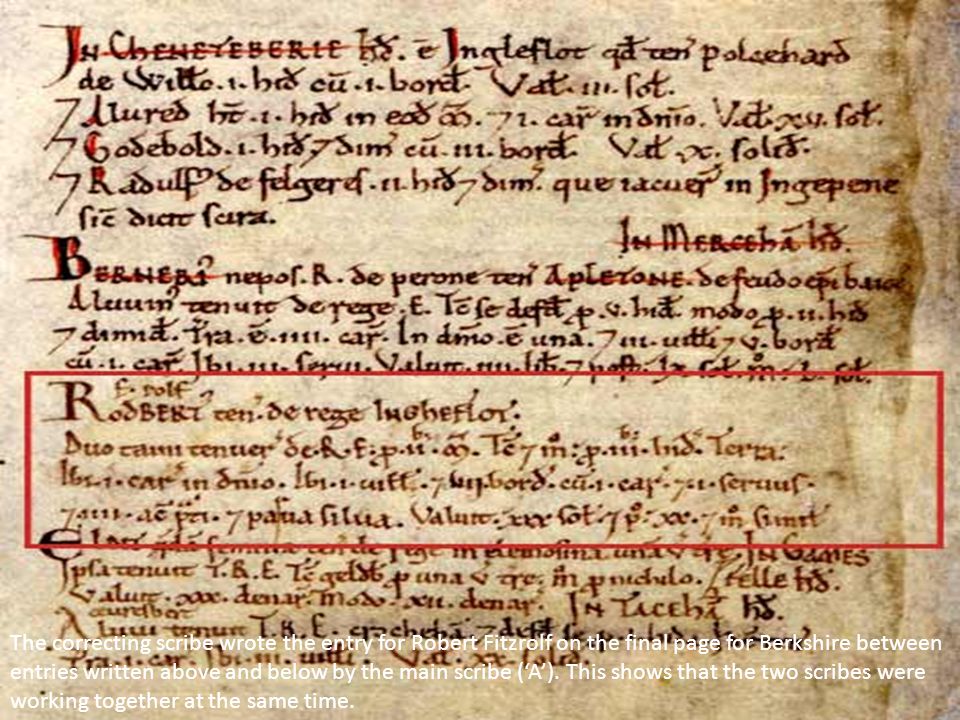 IN CHENETEBERIE hđ. ē Ingleflot qđ ten' Polcehard
de Witto. i. hiđ cū. i. borđ. Val. iii. sol.
7 Alured ht. i. hiđ in eođ m̄. 7 i. car in dn̄io. Val. xv. sol.
7 Godebold. i. hiđ 7 dim̄ cū. iii. borđ. Val x. soliđ.
7 Radulf' de felgeres. ii. hiđ 7 dim̄. que iacuer in Ingepene
sic̄ dicit scira.
IN MERCEHĀ hđ.
BERNER' nepos. R. de perone ten' APLETONE. de feudo ep̄i baioc̄
Aluuin' tenuit de rege. E. Tc̄ se defđ p. v. hiđ. modo p. ii. hiđ
7 dimiđ. Tr̄a. ē. iiii. car. In dn̄io. ē una. 7 iii. uilli 7 v. borđ
cū. i. car. Ibi. ii. serui. Valuit. iii. lib. 7 post. lx. sol. m̊. l. sol.
F. rolf
RODBERT' ten'. de rege INGHEFLOT.
Duo taini tenuer' de. R. E. p. ii. m̄. Tc̄ 7 m̊. p. iii. hiđ. Terra.
Ibi. i. car' in dn̄io. Ibi. i. uill'. 7 vii. borđ'. cū. i. car'. 7 ii. seruus.
7 iiii. ac̄ p̄ti. 7 parua silua. Valuit. xxx sol. 7 p'. xx. 7 m̊ simil
femina ten' de rege in elemosina una v' træ. IN GAMES
Ipsa tenuit T. R. E. Tc̄ gelđb p una v' træ. m̊ p nichilo. FELLE hđ.
Valuit. xxx. denar. Modo. xii. denar. IN TACEHĀ hđ.
tenuit T. R. E.
The correcting scribe wrote the entry for Robert Fitzrolf on the final page for Berkshire between
entries written above and below by the main scribe (‘A’). This shows that the two scribes were
working together at the same time.